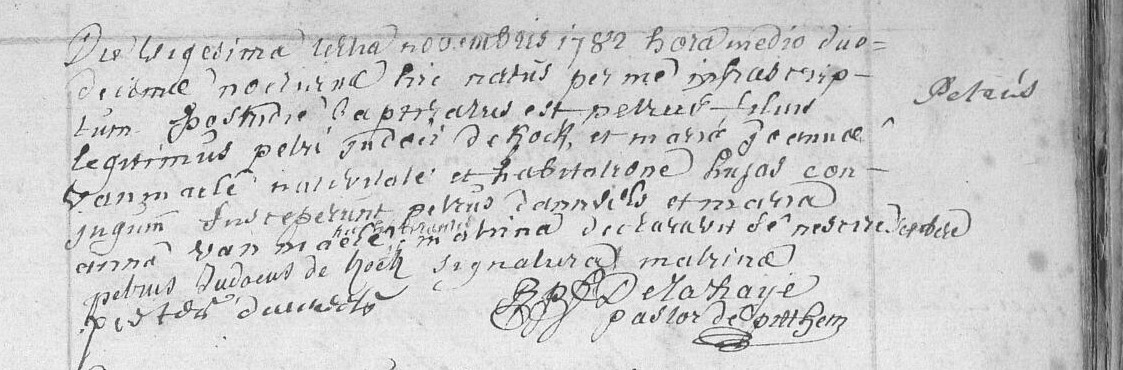 Die vigesima tertia novembris 1782 hora medio duo=
decimæ nocturnæ hic natus per me infrascrip-
tum postridie baptizatus est petrus filius
legitimus petri judoci de kock, et mariæ joannæ
vanmaele nativitate et habitatione hujus con-
jugum susceperunt petrus dauwels et maria
anna van maele matrina declaravit se nescire scribere
petrus Judocus de kock signatura matrinæ
pieter dauwels
Delahaije
pastor de pitthem
Petrus